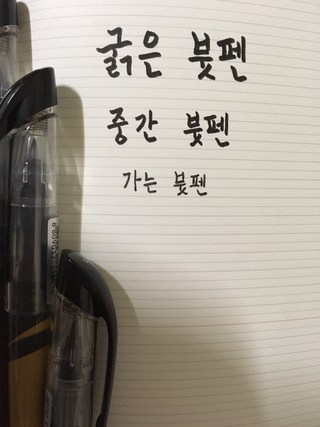 굵은 붓펜
중간 붓펜
가는 붓펜